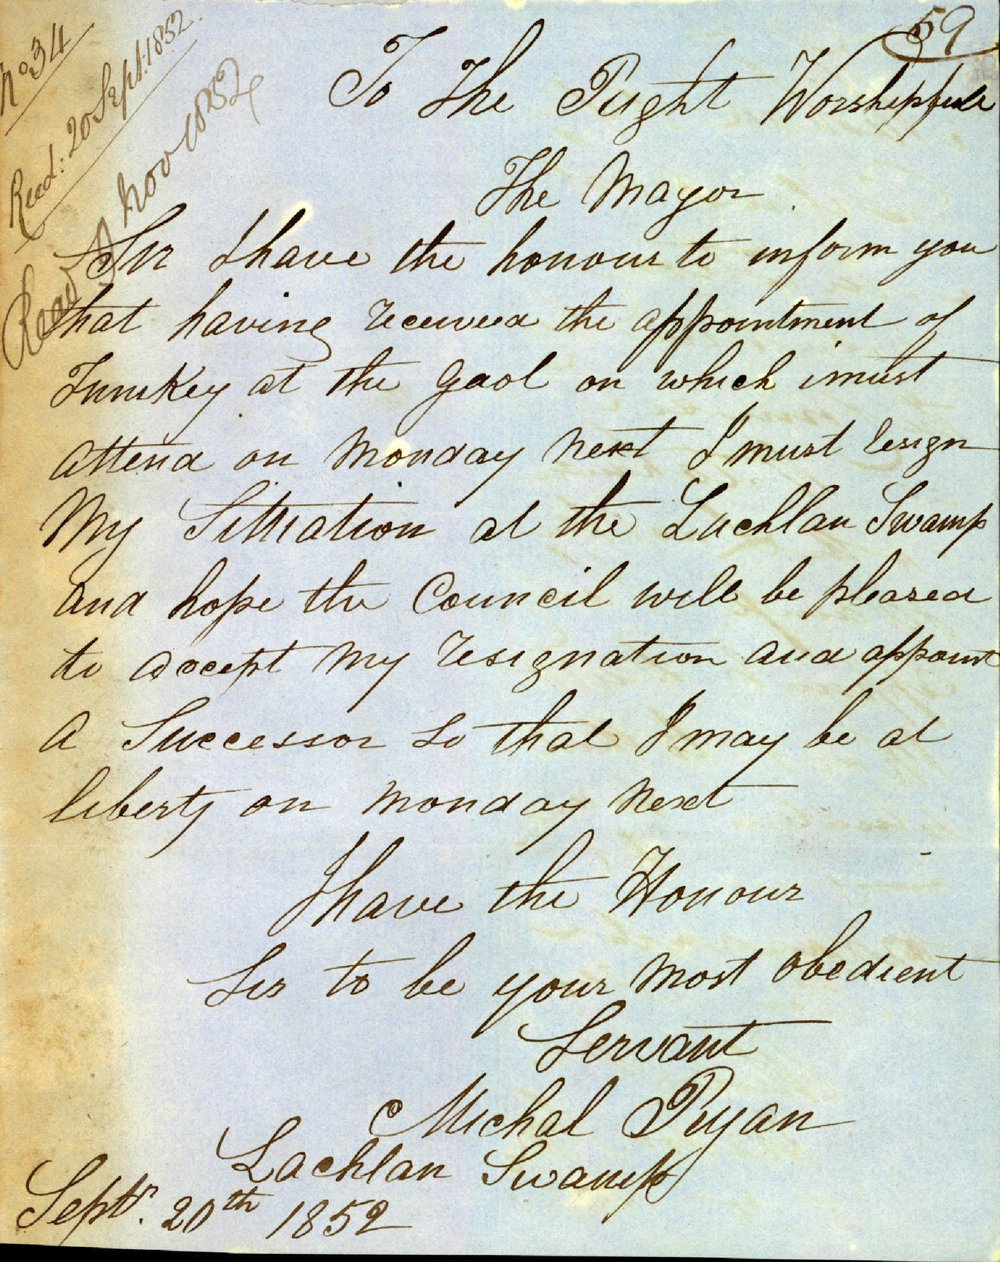 59
No 34
Recd: 20 Sept: 1852.
Read Nov 1852
To The Right Worshipfull
The Mayor
Sir I have the honour to inform you
that having received the appointment of
Turnkey at the Gaol on which i must
attend on Monday next I must resign
My Sittiation at the Lachlan Swamp
and hope the Council will be pleased
to accept My resignation and appoint
A Successor so that I may be at
liberty on Monday next
I have the Honour
Sir to be your most obedient
Servant
Michal Ryan
Lachlan Swamp
Septr. 20th 1852